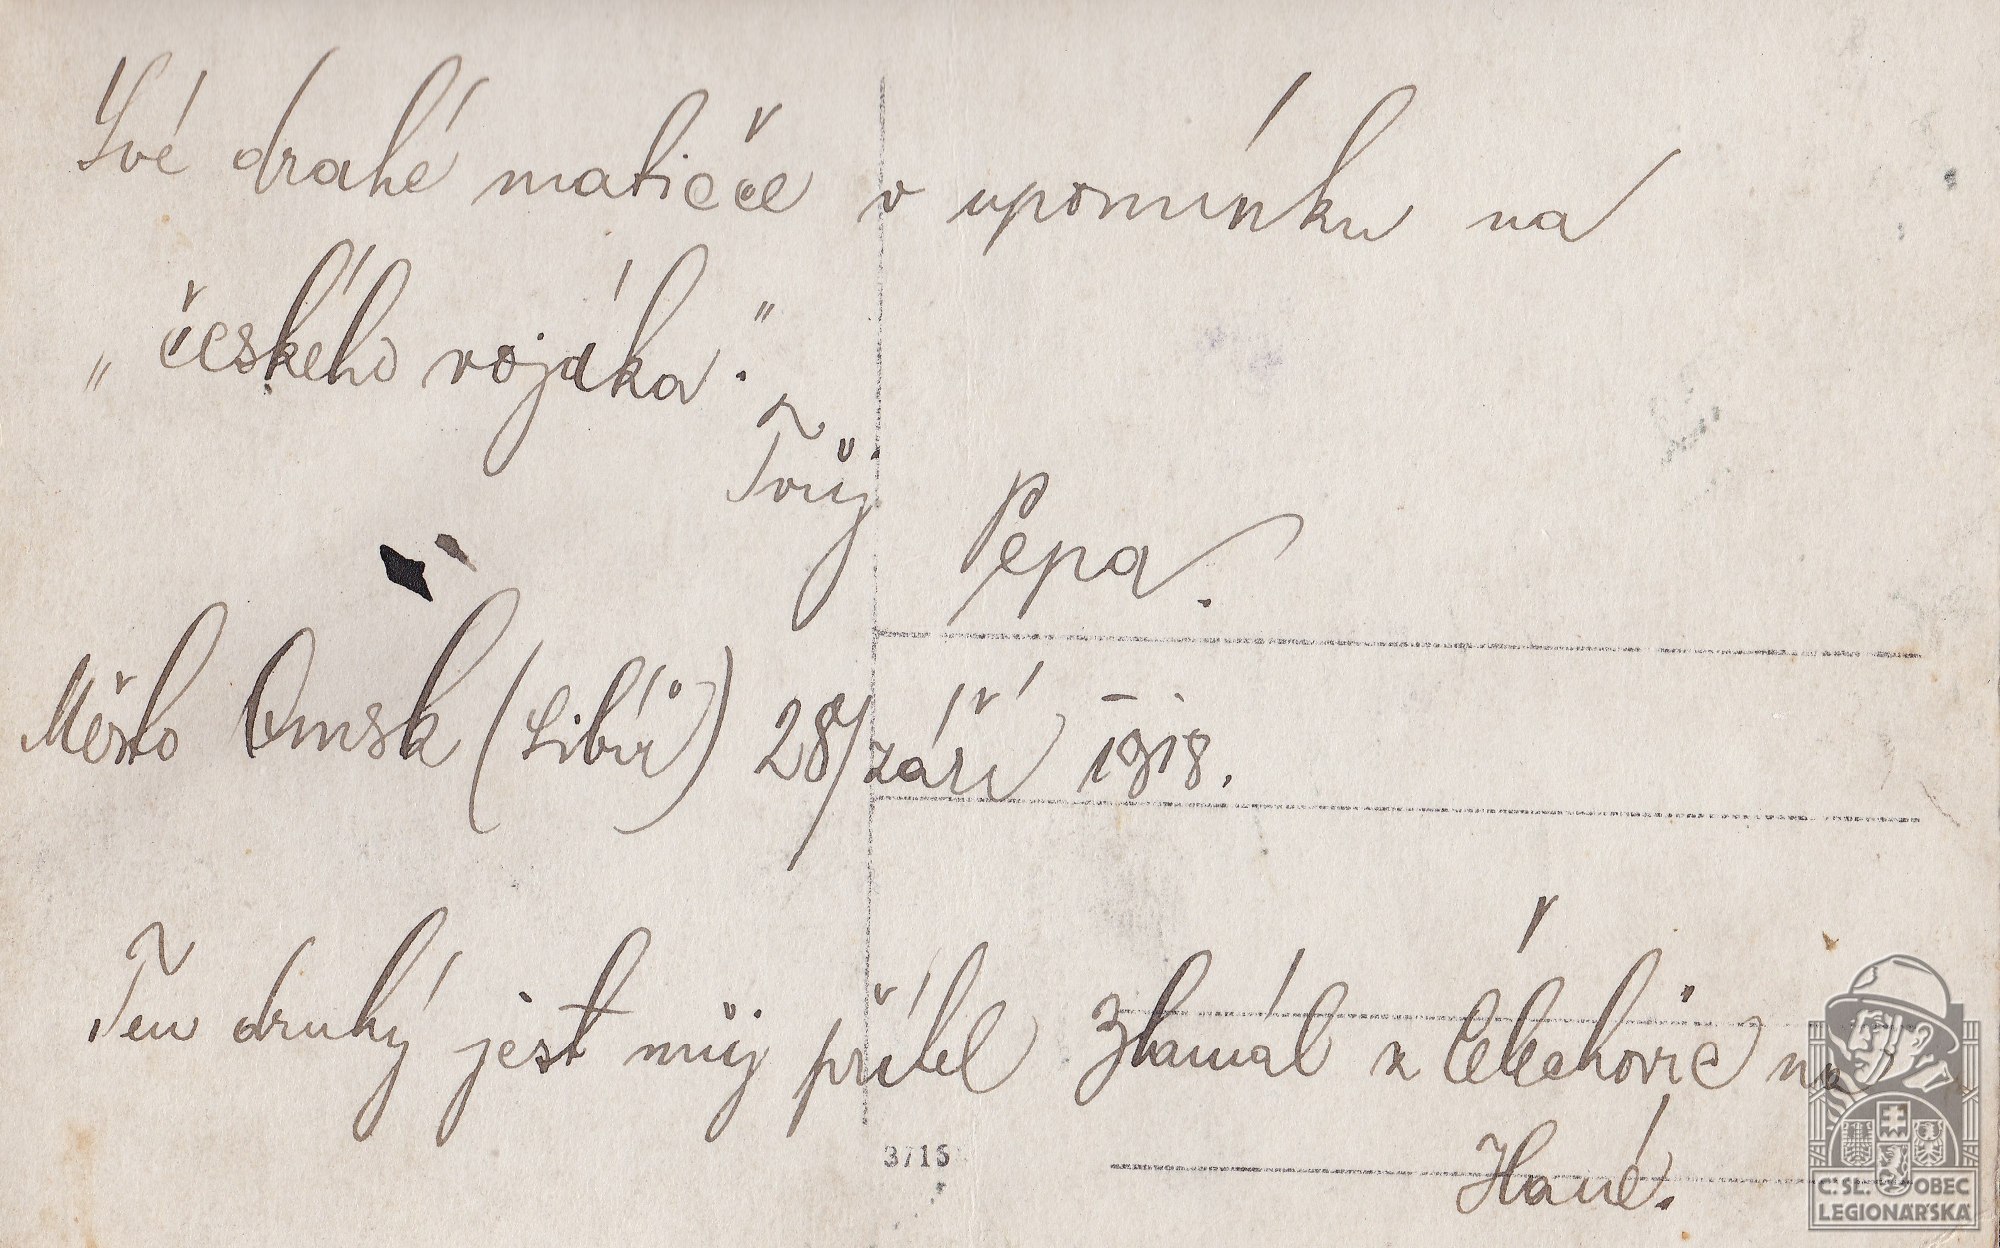 Své drahé matičce v upomínku na
„českého vojáka."
Tvůj Pepa.
Město Omsk (Sibiř) 28/září 1918.
Ten druhý jest můj přítel Zlamál z Čelechovic na
Hané.
3715
Č. SL. OBEC
LEGIONÁŘSKÁ